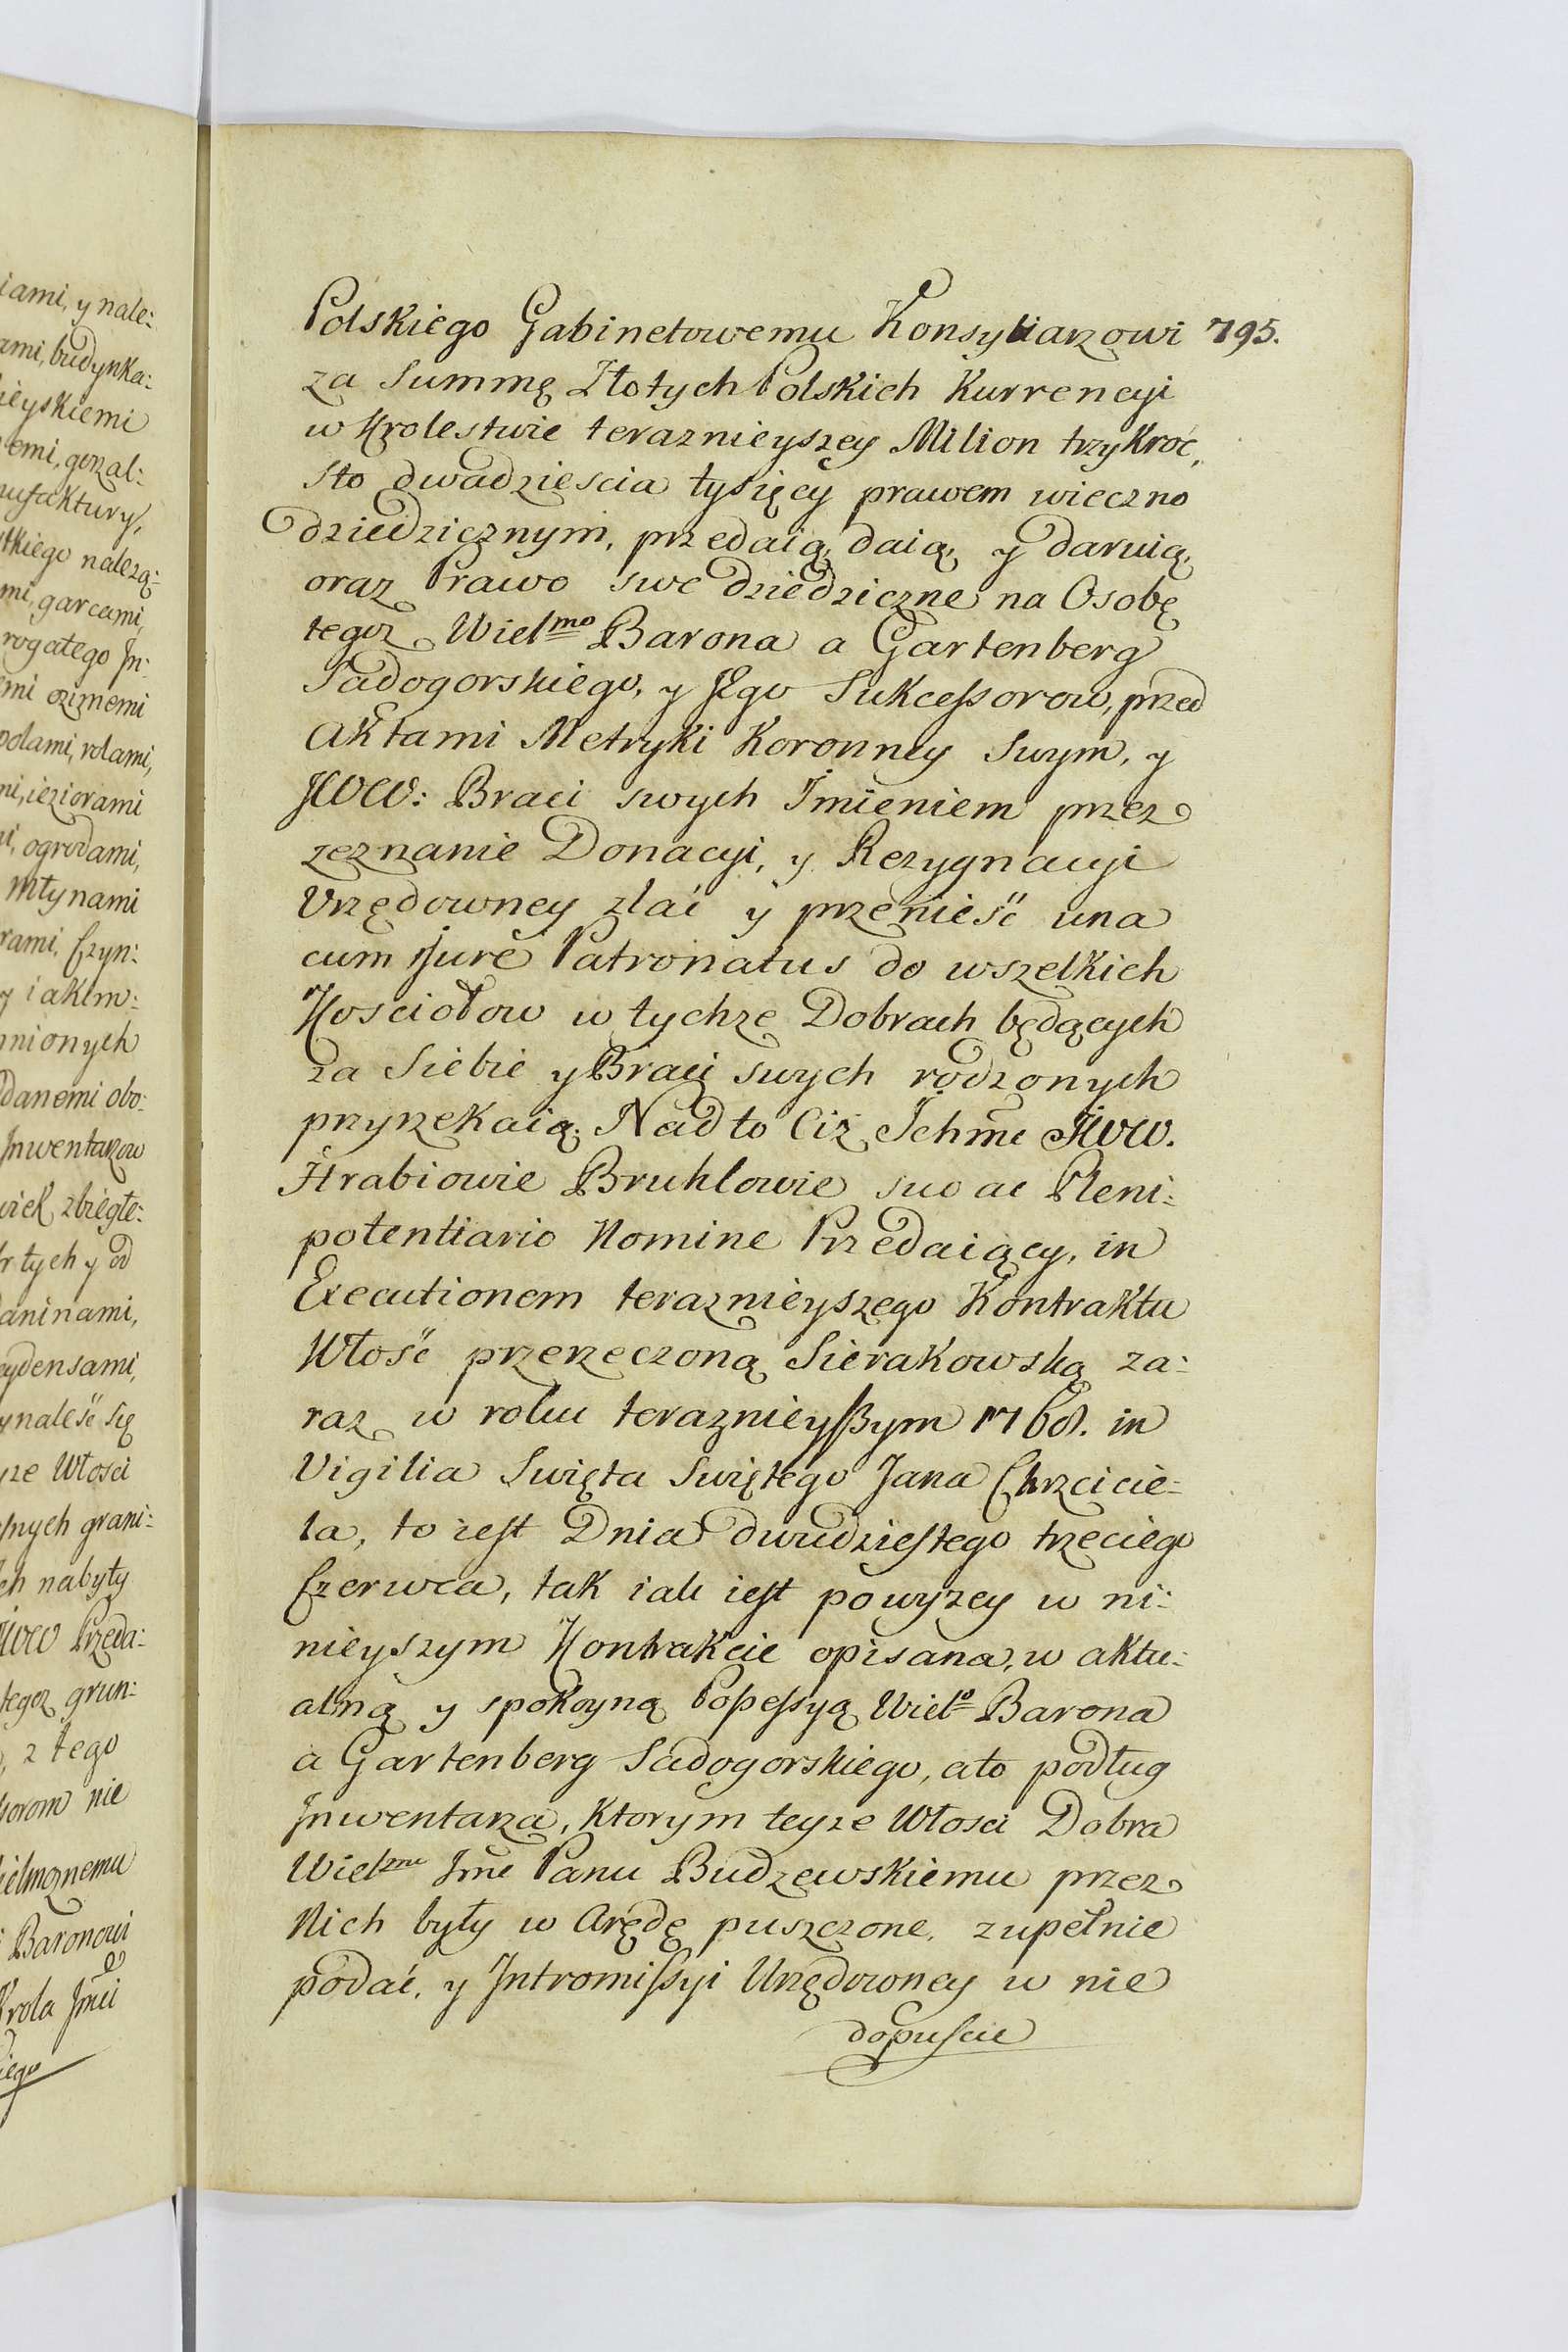 iami, y nale:
ami, budynka:
ieyskiemi
emi, gorzal:
nufaktury,
tkiego nalezą:
mi, garcami,
rogatego Jn:
emi oziznemi
polami, rolami,
ni, ieziorami
i, ogrodami,
młynami
rami, Czyn:
y iakim:
mionych
danemi obo:
Jnwentarzow
wiek zbiegłe:
tych y od
daninami,
cydensami,
ynaleść się
yże Włości
snych grani:
ch nabyty
JWW Przeda:
tegoz grun:
z tego
sorom nie
ielmoznemu
Baronowi
Krola Jmći
iego
Polskiego Gabinetowemu Konsyliarzowi 795.
za Summę Złotych Polskich Kurrencyi
w Krolestwie teraznieyszey Milion trzykroć,
sto dwadziescia tysięcy prawem wieczno
dziedzicznym, przedaią, daią, y daruią,
oraz Prawo swe dziedziczne na Osobę
tegoz Wielmo Barona a Gartenberg
Sadogorskiego, y Jego Sukcessorow, przed
Aktami Metryki Koronney Swym, y
JWW: Braci swych Jmieniem przez
zeznanie Donacyi, y Rezygnacyi
Urzędowney zlać y przenieść una
cum Jure Patronatus do wszelkich
Kosciołow w tychze Dobrach będących
za Siebie y Braci swych rodzonych
przyrzekaią. Nadto Ciz Jchmć JWW.
Hrabiowie Bruhlowie suo ac Pleni:
potentiario Nomine Przedaiący, in
Executionem teraznieyszego Kontraktu
Włość przerzeczoną Sierakowską za:
raz w roku teraznieyszym 1768. in
Vigilia Swięta Swiętego Jana Chrzcicie:
la, to iest Dnia dwudziestego trzeciego
Czerwca, tak iak iest powyzey w ni:
nieyszym Kontrakcie opisana, w aktu:
alną y spokoyną Possessyą Wielo Barona
a Gartenberg Sadogorskiego, ato podług
Jnwentarza, ktorym teyze Włosci Dobra
Wielzmu Jmć Panu Budzewskiemu przez
Nich były w Arędę puszczone, zupełnie
podać, y Jntromissyi Urzędowney w nie
dopuscić